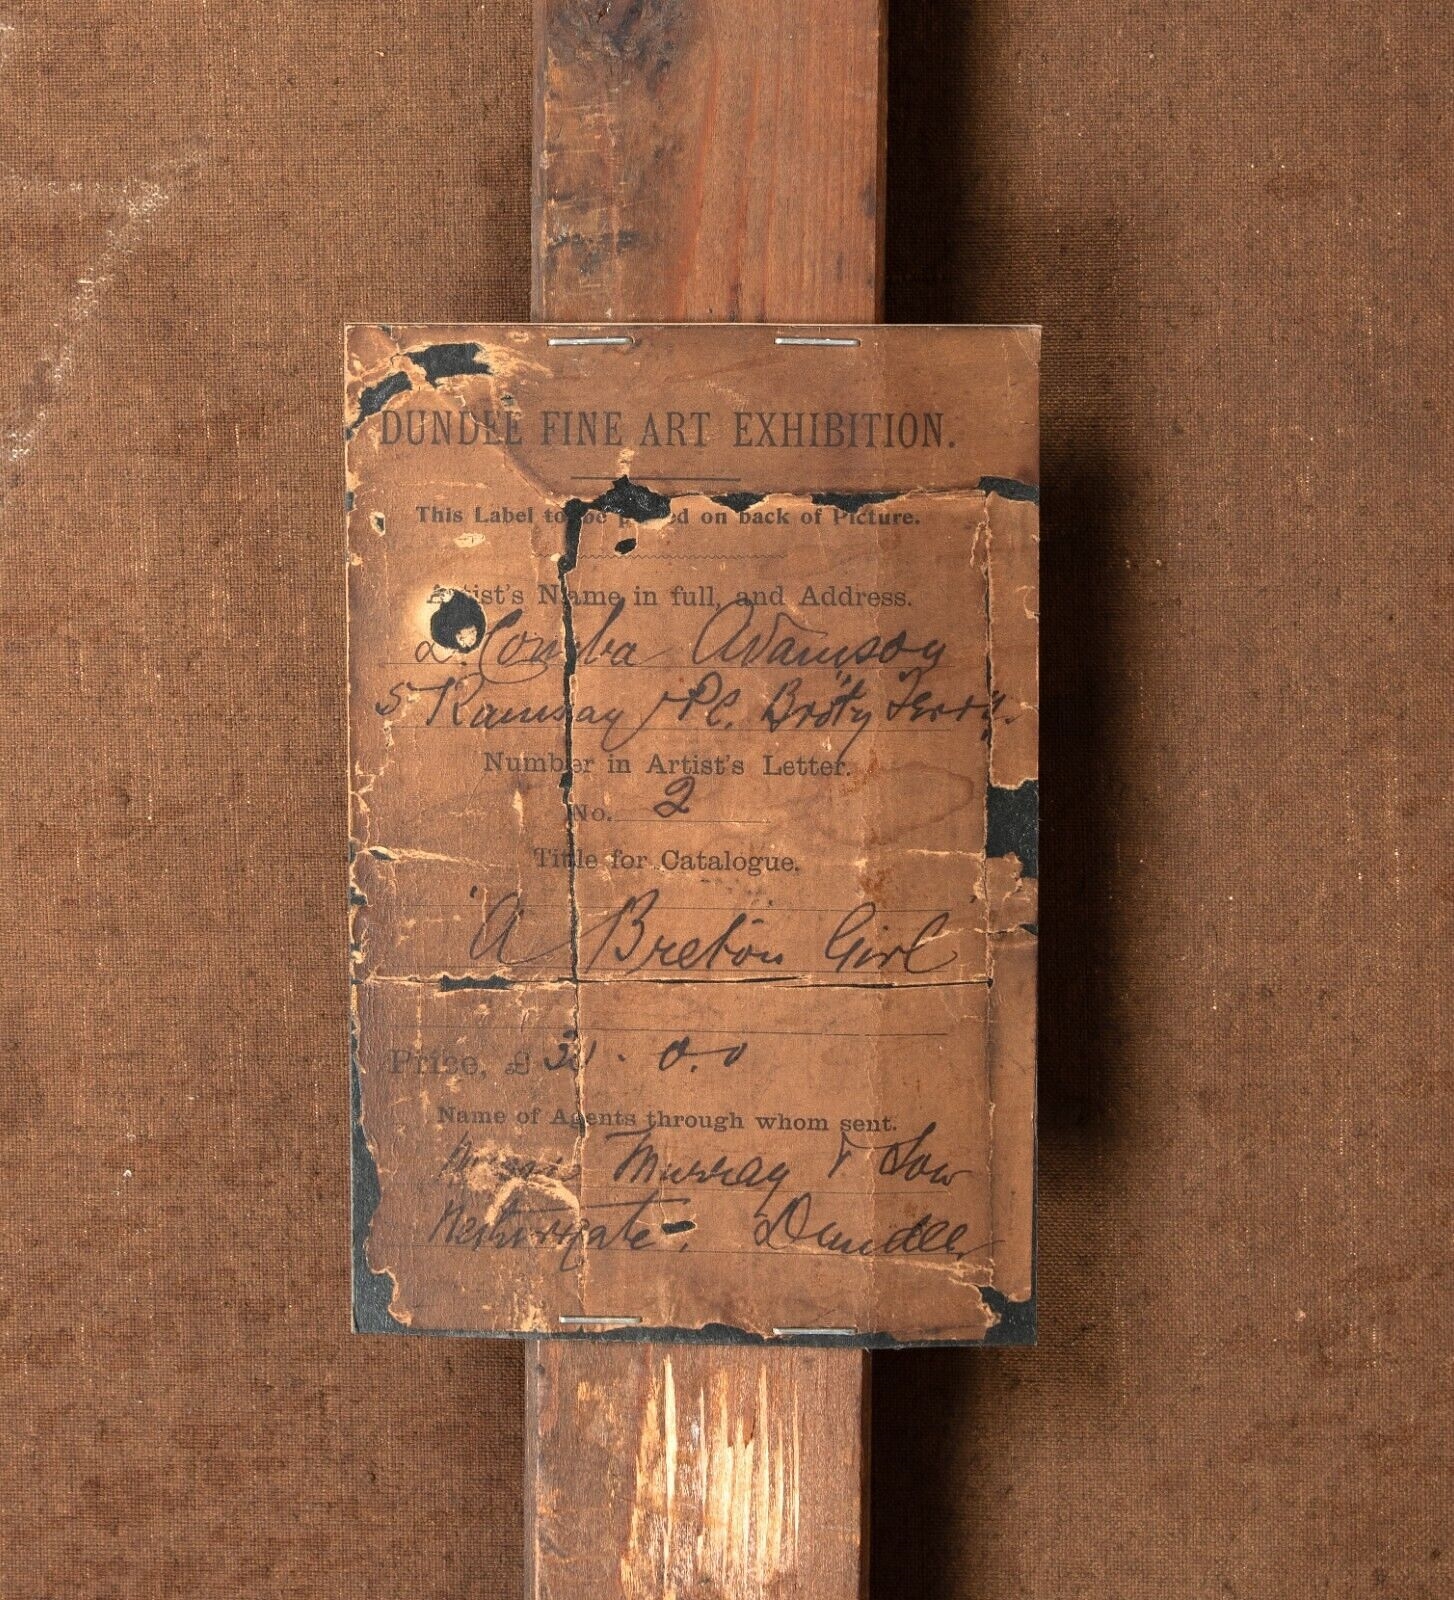 DUNDEE FINE ART EXHIBITION.
This Label to be pasted on back of Picture.
Artist's Name in full, and Address.
Comba Adamson
5 Ramsay Pl. Broty Ferry.
Number in Artist's Letter.
No. 2
Title for Catalogue.
"A Breton Girl"
Price, £ . 0. 0
Name of Agents through whom sent.
Murray & Low
Dundee